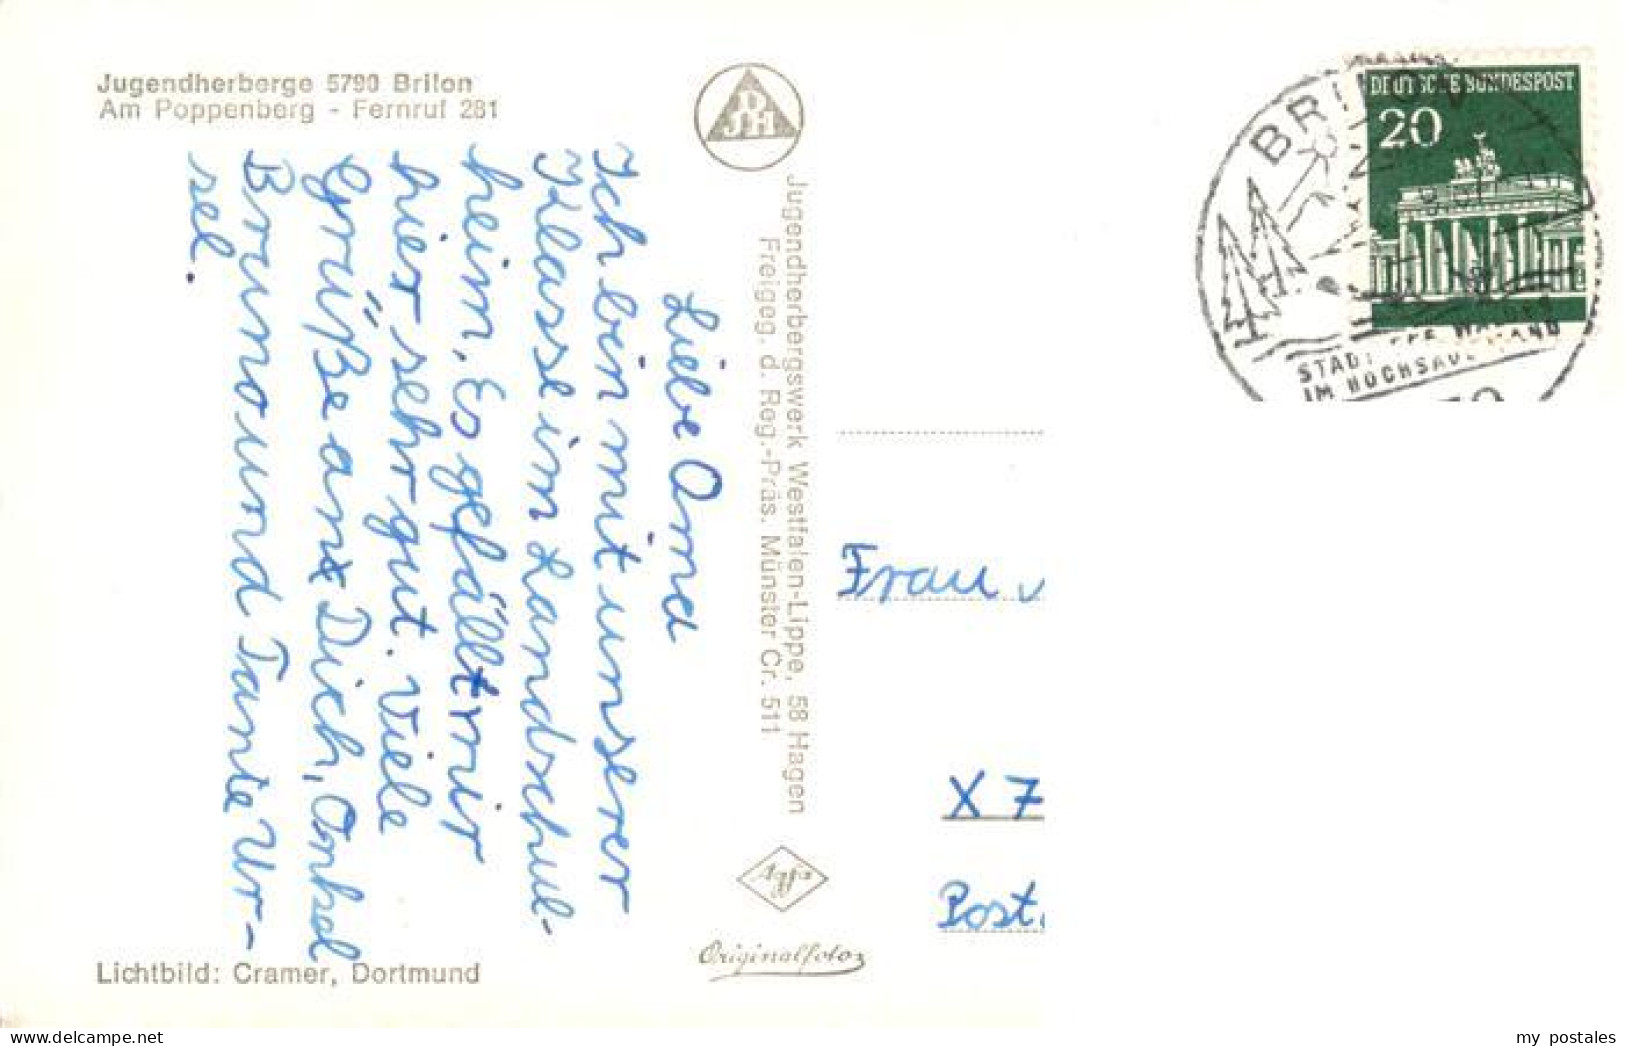 Jugendherberge 5790 Brilon
Am Poppenberg - Fernruf 281
DJH
Liebe Oma
Ich bin mit unserer
Klasse im Landschul-
heim. Es gefällt mir
hier sehr gut. Viele
Grüße an Dich, Onkel
Bruno und Tante Ur-
sel.
Jugendherbergswerk Westfalen-Lippe, 58 Hagen
Freigeg. d. Reg.-Präs. Münster Cr. 511
Agfa
Originalfoto
Lichtbild: Cramer, Dortmund
DEUTSCHE BUNDESPOST
20
BRILON
STADT DES WALDES
IM HOCHSAUERLAND
Frau
X 7
Post
my postales